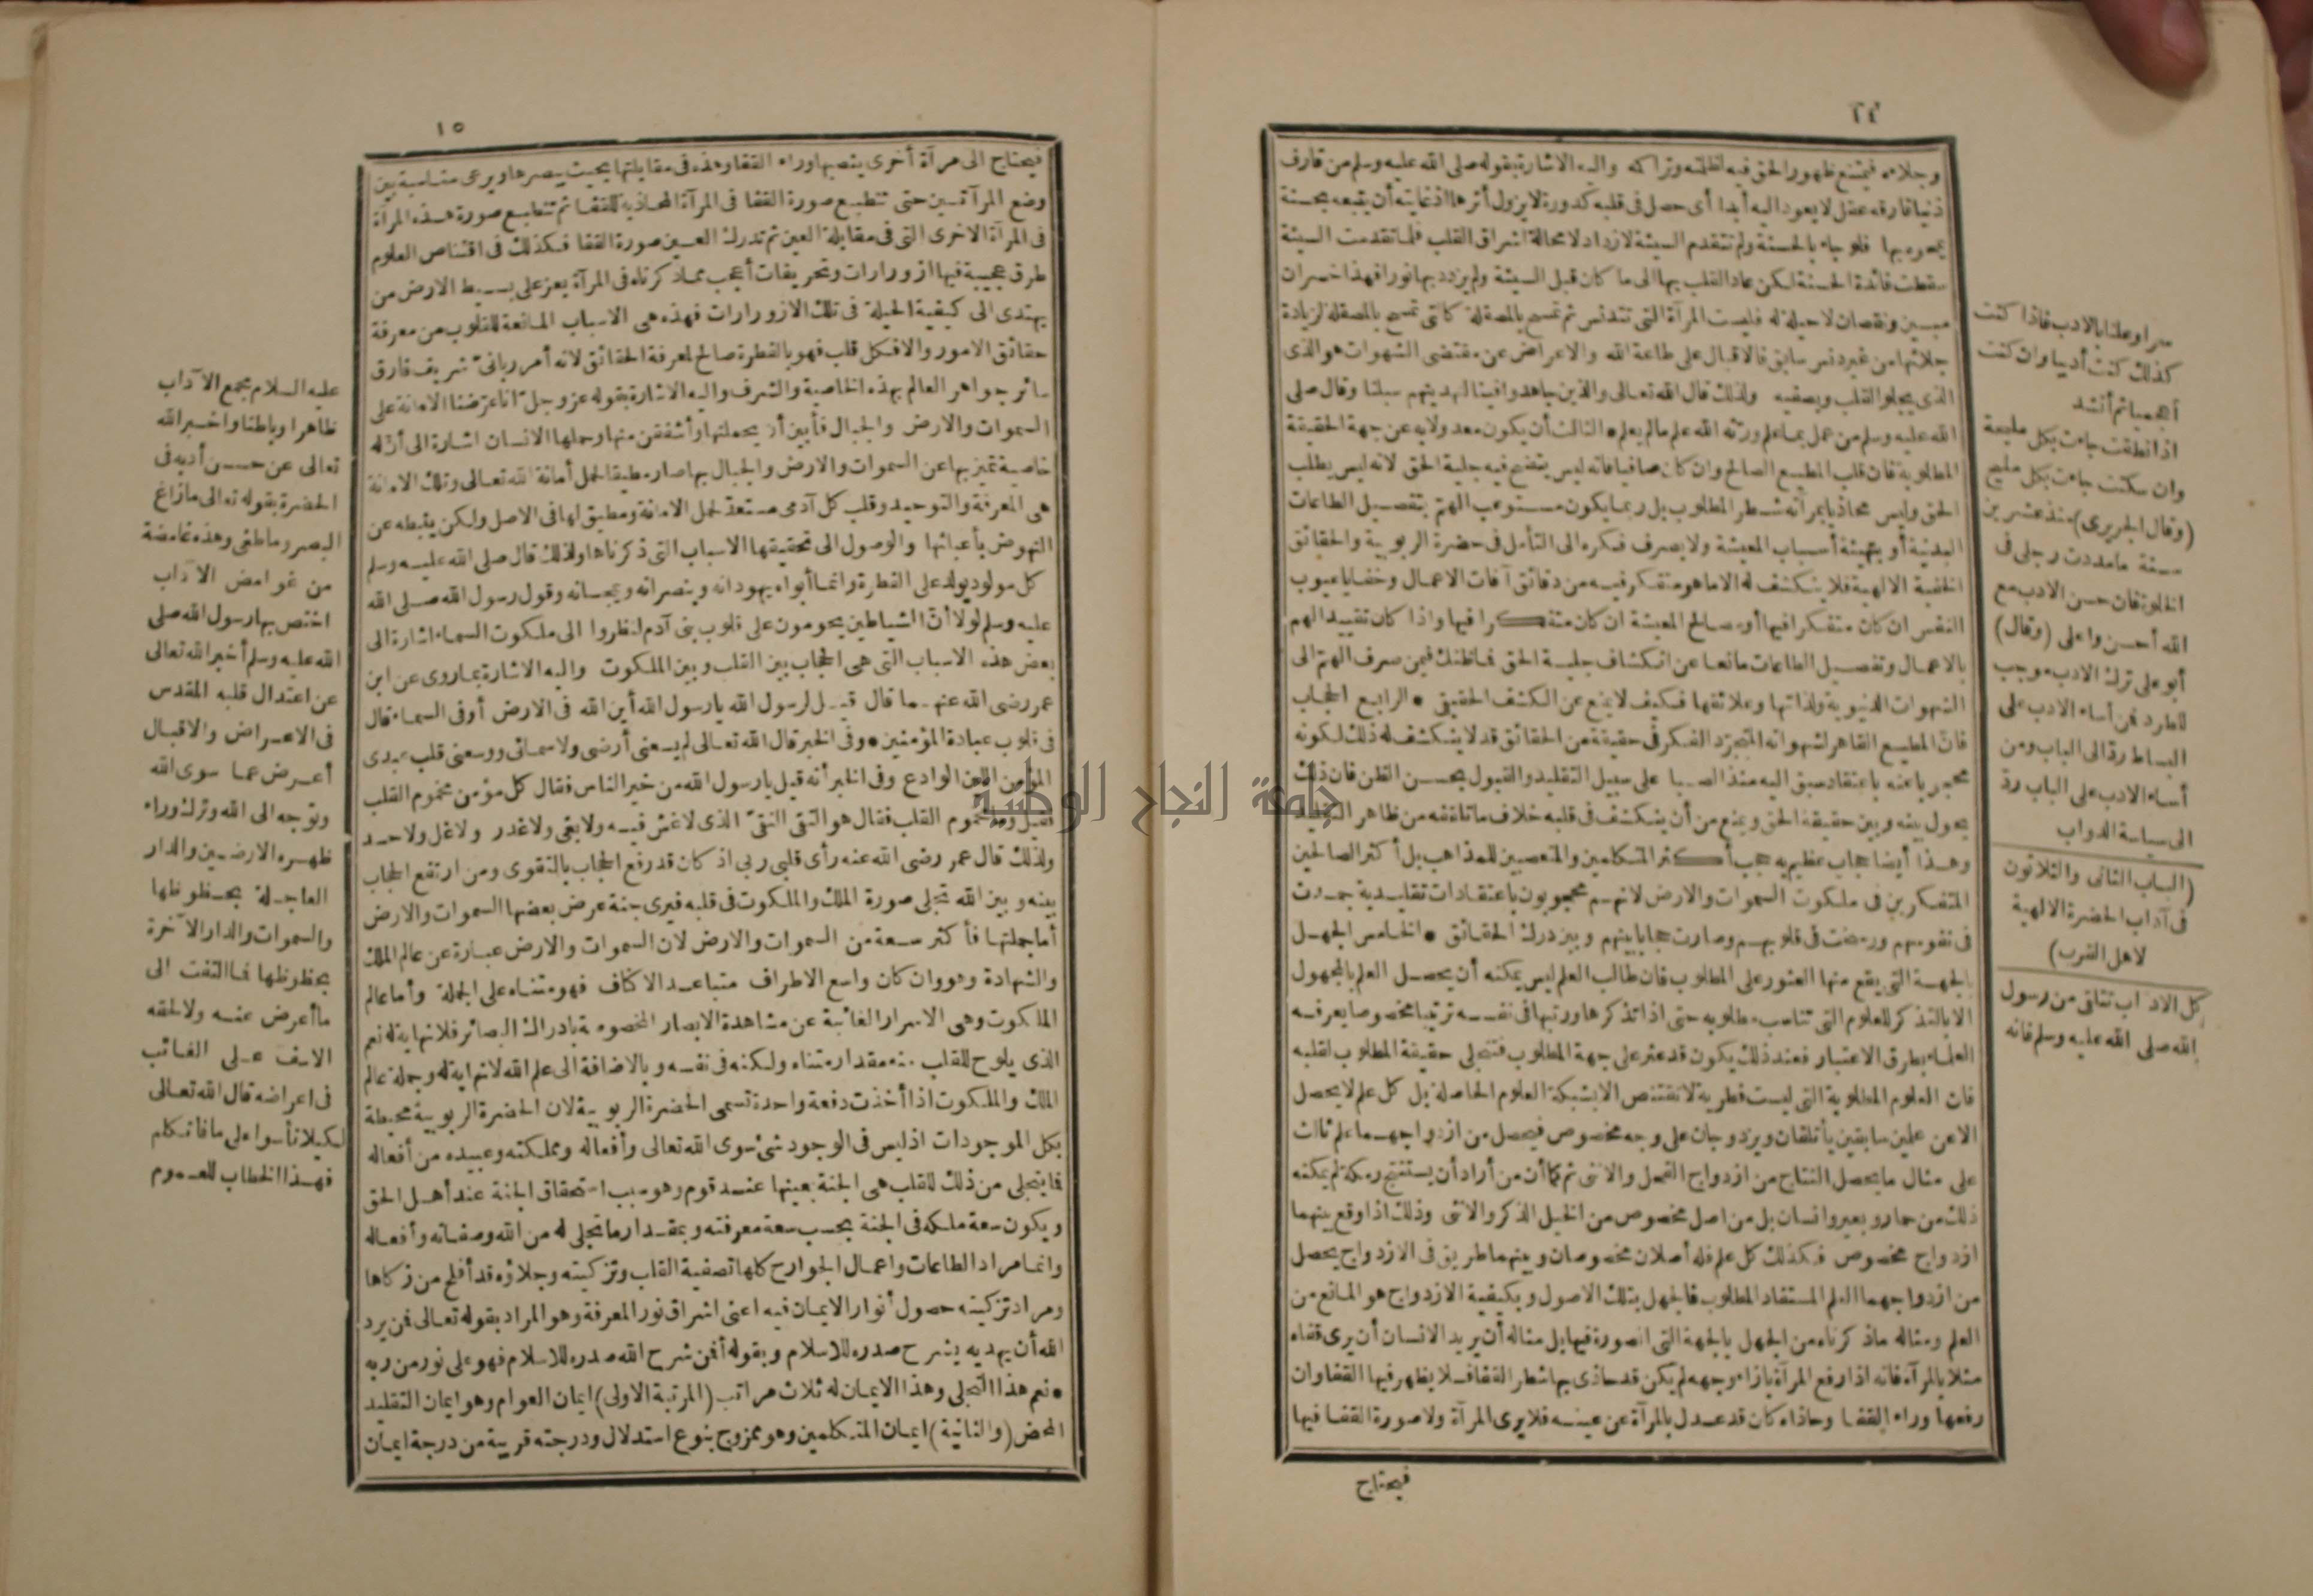 ١٤
وجلاءه فيمتنع ظهور الحق فيه لظلمته وتراكمه واليه الاشارة بقوله صلى الله عليه وسلم من قارف
ذنبا فارقه عقل لا يعود اليه أبدا أى حصل فى قلبه كدورة لا يزول أثرها اذ غايته أن يتبعه بحسنة
يمحوه بها فلو جاء بالحسنة ولم تتقدم السيئة لازداد لا محالة اشراق القلب فلما تقدمت السيئة
سقطت فائدة الحسنة لكن عاد القلب بها الى ما كان قبل السيئة ولم يزدد بها نورا فهذا خسران
مبين ونقصان لا حيلة له فليست المرآة التى تتدنس ثم تمسح بالمصقلة كالتى تمسح بالمصقلة لزيادة
جلائها من غير دنس سابق فالاقبال على طاعة الله والاعراض عن مقتضى الشهوات هو الذى
الذى يجلو القلب ويصفيه ولذلك قال الله تعالى والذين جاهدوا فينا لنهدينهم سبلنا وقال صلى
الله عليه وسلم من عمل بما علم ورثه الله علم ما لم يعلم • الثالث أن يكون معدولا به عن جهة الحقيقة
المطلوبة فان قلب المطيع الصالح وان كان صافيا فانه ليس يتضح فيه جلية الحق لانه ليس يطلب
الحق وليس محاذيا بمرآته شطر المطلوب بل ربما يكون مستوعب الهم بتفصيل الطاعات
البدنية أو بتهيئة أسباب المعيشة ولا يصرف فكره الى التأمل فى حضرة الربوبية والحقائق
الخفية الالهية فلا ينكشف له الا ما هو متفكر فيه من دقائق آفات الاعمال وخفايا عيوب
النفس ان كان متفكرا فيها أو مصالح المعيشة ان كان متفكرا فيها واذا كان تقييد الهم
بالاعمال وتفصيل الطاعات مانعا عن انكشاف جلية الحق فما ظنك فيمن صرف الهم الى
الشهوات الدنيوية ولذاتها وعلائقها فكيف لا يمنع عن الكشف الحقيقى • الرابع الحجاب
فان المطيع القاهر لشهواته المتجرد الفكر فى حقيقة من الحقائق قد لا ينكشف له ذلك لكونه
محجوبا عنه باعتقاد سبق اليه منذ الصبا على سبيل التقليد والقبول بحسن الظن فان ذلك
يحول بينه وبين حقيقة الحق ويمنع من أن ينكشف فى قلبه خلاف ما تلقفه من ظاهر التقليد
وهذا أيضا حجاب عظيم به حجب أكثر المتكلمين والمتعصبين للمذاهب بل أكثر الصالحين
المتفكرين فى ملكوت السموات والارض لانهم محجوبون باعتقادات تقليدية جمدت
فى نفوسهم ورسخت فى قلوبهم وصارت حجابا بينهم وبين درك الحقائق • الخامس الجهل
بالجهة التى يقع منها العثور على المطلوب فان طالب العلم ليس يمكنه أن يحصل العلم بالمجهول
الا بالتذكر للعلوم التى تناسب مطلوبه حتى اذا تذكرها ورتبها فى نفسه ترتيبا مخصوصا يعرفه
العلماء بطرق الاعتبار فعند ذلك يكون قد عثر على جهة المطلوب فتتجلى حقيقة المطلوب لقلبه
فان العلوم المطلوبة التى ليست فطرية لا تقتنص الا بشبكة العلوم الحاصلة بل كل علم لا يحصل
الا عن علمين سابقين يأتلفان ويزدوجان على وجه مخصوص فيحصل من ازدواجهما علم ثالث
على مثال ما يحصل النتاج من ازدواج الفحل والانثى ثم كما أن من أراد أن يستنتج رمكة لم يمكنه
ذلك من حمار وبعير وانسان بل من اصل مخصوص من الخيل الذكر والانثى وذلك اذا وقع بينهما
ازدواج مخصوص فكذلك كل علم فله أصلان مخصوصان وبينهما طريق فى الازدواج يحصل
من ازدواجهما العلم المستفاد المطلوب فالجهل بتلك الاصول وبكيفية الازدواج هو المانع من
العلم ومثاله ما ذكرناه من الجهل بالجهة التى الصورة فيها بل مثاله أن يريد الانسان أن يرى قفاه
مثلا بالمرآة فانه اذا رفع المرآة بازاء وجهه لم يكن قد حاذى بها شطر القفا فلا يظهر فيها القفا وان
رفعها وراء القفا وحاذاه كان قد عدل بالمرآة عن عينه فلا يرى المرآة ولا صورة القفا فيها
فيحتاج
سرا وعلنا بالادب فاذا كنت
كذلك كنت أديبا وان كنت
أعجميا ثم أنشد
اذا نطقت جاءت بكل مليحة
وان سكتت جاءت بكل مليح
(وقال الجريرى) منذ عشرين
سنة ما مددت رجلى فى
الخلوة فان حسن الادب مع
الله أحسن وأولى (وقال)
أبو على ترك الادب موجب
للطرد فمن أساء الادب على
البساط رد الى الباب ومن
أساء الادب على الباب رد
الى سياسة الدواب
(الباب الثانى والثلاثون
فى آداب الحضرة الالهية
لاهل القرب)
كل الآداب تتلقى من رسول
الله صلى الله عليه وسلم فانه
١٥
فيحتاج الى مرآة أخرى ينصبها وراء القفا وهذه فى مقابلتها بحيث يبصرها ويرعى مناسبة بين
وضع المرآتين حتى تنطبع صورة القفا فى المرآة المحاذية للقفا ثم تنطبع صورة هذه المرآة
فى المرآة الاخرى التى فى مقابلة العين ثم تدرك العين صورة القفا فكذلك فى اقتناص العلوم
طرق عجيبة فيها ازورارات وتحريفات أعجب مما ذكرناه فى المرآة يعز على بسيط الارض من
يهتدى الى كيفية الحيلة فى تلك الازورارات فهذه هى الاسباب المانعة للقلوب من معرفة
حقائق الامور والا فكل قلب فهو بالفطرة صالح لمعرفة الحقائق لانه أمر ربانى شريف فارق
سائر جواهر العالم بهذه الخاصية والشرف واليه الاشارة بقوله عز وجل انا عرضنا الامانة على
السموات والارض والجبال فأبين أن يحملنها وأشفقن منها وحملها الانسان اشارة الى أن له
خاصية تميز بها عن السموات والارض والجبال بها صار مطيقا لحمل أمانة الله تعالى وتلك الامانة
هى المعرفة والتوحيد وقلب كل آدمى مستعد لحمل الامانة ومطيق لها فى الاصل ولكن يثبطه عن
النهوض بأعبائها والوصول الى تحقيقها الاسباب التى ذكرناها ولذلك قال صلى الله عليه وسلم
كل مولود يولد على الفطرة وانما أبواه يهودانه وينصرانه ويمجسانه وقول رسول الله صلى الله
عليه وسلم لولا أن الشياطين يحومون على قلوب بنى آدم لنظروا الى ملكوت السماء اشارة الى
بعض هذه الاسباب التى هى الحجاب بين القلب وبين الملكوت واليه الاشارة بما روى عن ابن
عمر رضى الله عنهما قال قيل لرسول الله يا رسول الله أين الله فى الارض أو فى السماء قال
فى قلوب عباده المؤمنين • وفى الخبر قال الله تعالى لم يسعنى أرضى ولا سمائى ووسعنى قلب عبدى
المؤمن اللين الوادع وفى الخبر أنه قيل يا رسول الله من خير الناس فقال كل مؤمن مخموم القلب
فقيل وما مخموم القلب فقال هو التقى النقى الذى لا غش فيه ولا بغى ولا غدر ولا غل ولا حسد
ولذلك قال عمر رضى الله عنه رأى قلبى ربى اذ كان قد رفع الحجاب بالتقوى ومن ارتفع الحجاب
بينه وبين الله تجلى صورة الملك والملكوت فى قلبه فيرى جنة عرض بعضها السموات والارض
أما جملتها فأكثر سعة من السموات والارض لان السموات والارض عبارة عن عالم الملك
والشهادة وهو وان كان واسع الاطراف متباعد الاكناف فهو متناه على الجملة وأما عالم
الملكوت وهى الاسرار الغائبة عن مشاهدة الابصار المخصوصة بادراك البصائر فلا نهاية له نعم
الذى يلوح للقلب منه مقدار متناه ولكنه فى نفسه وبالاضافة الى علم الله لا نهاية له وجملة عالم
الملك والملكوت اذا أخذت دفعة واحدة تسمى الحضرة الربوبية لان الحضرة الربوبية محيطة
بكل الموجودات اذ ليس فى الوجود شئ سوى الله تعالى وأفعاله ومملكته وعبيده من أفعاله
فما يتجلى من ذلك للقلب هى الجنة بعينها عند قوم وهو سبب استحقاق الجنة عند أهل الحق
ويكون سعة ملكه فى الجنة بحسب سعة معرفته وبمقدار ما تجلى له من الله وصفاته وأفعاله
وانما مراد الطاعات واعمال الجوارح كلها تصفية القلب وتزكيته وجلاؤه قد أفلح من زكاها
ومراد تزكيته حصول أنوار الايمان فيه اعنى اشراق نور المعرفة وهو المراد بقوله تعالى فمن يرد
الله أن يهديه يشرح صدره للاسلام وبقوله أفمن شرح الله صدره للاسلام فهو على نور من ربه
• نعم هذا التجلى وهذا الايمان له ثلاث مراتب (المرتبة الاولى) ايمان العوام وهو ايمان التقليد
المحض (والثانية) ايمان المتكلمين وهو ممزوج بنوع استدلال ودرجته قريبة من درجة ايمان
عليه السلام مجمع الآداب
ظاهرا وباطنا واخبر الله
تعالى عن حسن أدبه فى
الحضرة بقوله تعالى ما زاغ
البصر وما طغى وهذه غامضة
من غوامض الآداب
اختص بها رسول الله صلى
الله عليه وسلم أخبر الله تعالى
عن اعتدال قلبه المقدس
فى الاعراض والاقبال
أعرض عما سوى الله
وتوجه الى الله وترك وراء
ظهره الارضين والدار
العاجلة بحظوظها
والسموات والدار الآخرة
بحظوظها فما التفت الى
ما أعرض عنه ولا لحقه
الاسف على الفائت
فى اعراضه قال الله تعالى
لكيلا تأسوا على ما فاتكم
فهذا الخطاب للعموم
جامعة النجاح الوطنية